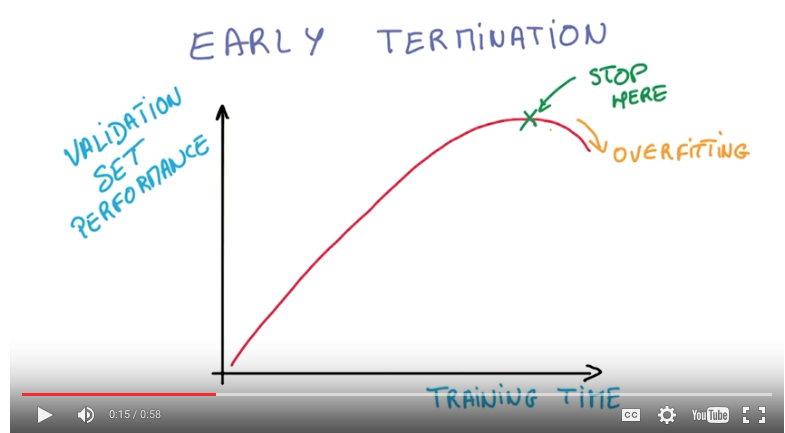 EARLY TERMINATION
STOP
HERE
VALIDATION
SET
PERFORMANCE
OVERFITTING
TRAINING TIME
0:15 / 0:58
CC
YouTube